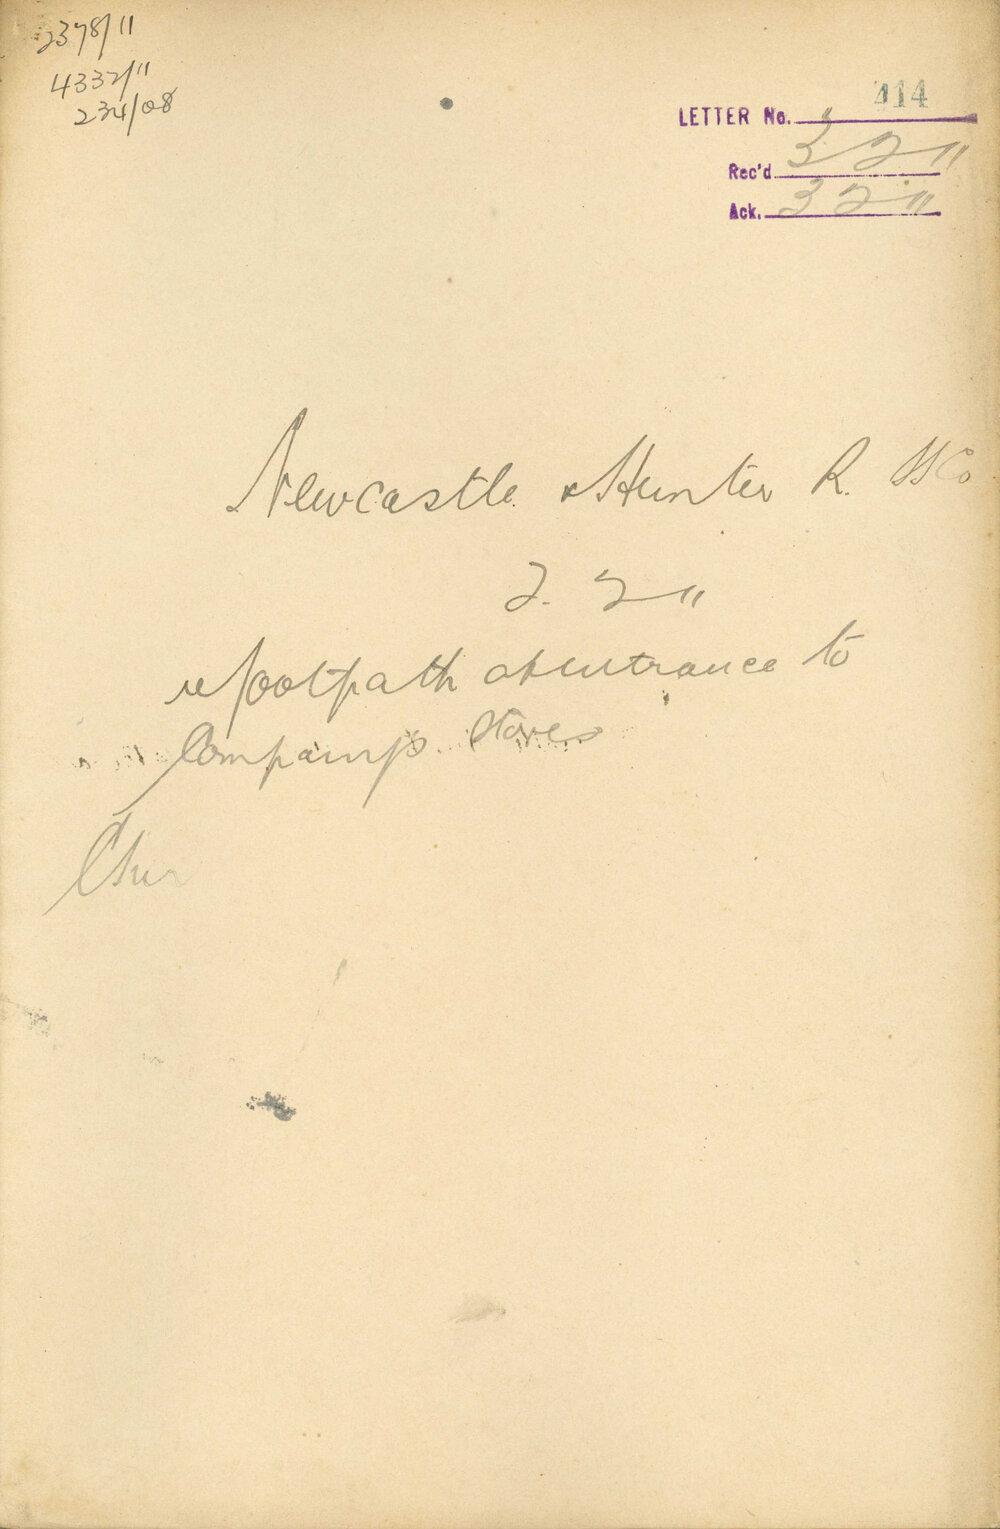 2378/11
4332/11
234/08
414
LETTER No.
Rec'd 3 2 11
Ack. 3 2 11
Newcastle & Hunter R. SS Co
2. 2 11
re footpath at entrance to
Company's Stores